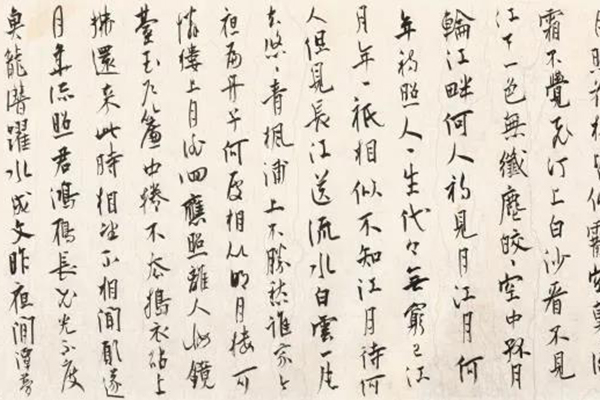 霜不覺飛汀上白沙看不見
江天一色無纖塵皎々空中孤月
輪江畔何人初見月江月何
年初照人々生代々無窮已江
月年々祇相似不知江月待何
人但見長江送流水白雲一片
去悠々青楓浦上不勝愁誰家今
夜扁舟子何處相思明月樓可
憐樓上月徘徊應照離人妝鏡
臺玉戶簾中捲不去搗衣砧上
拂還來此時相望不相聞願逐
月華流照君鴻雁長飛光不度
魚龍潛躍水成文昨夜閒潭夢